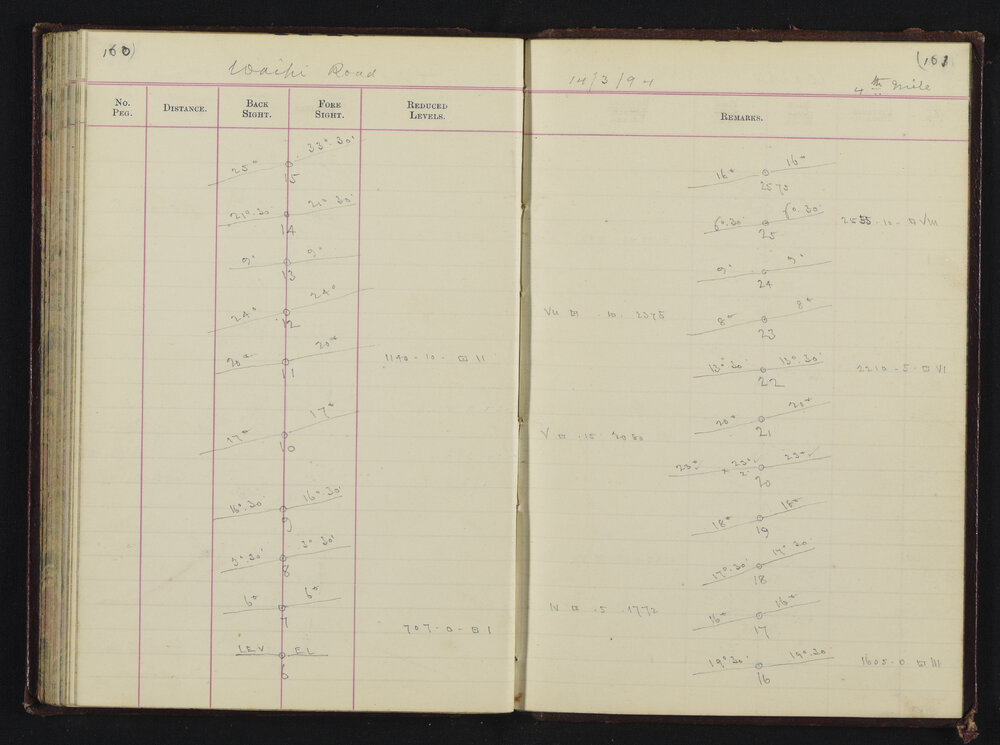 160)
Waihi Road
No. Peg. Distance. Back Sight. Fore Sight. Reduced Levels.
25° 33°.30'
15
21°.30' 21°.30'
14
9° 9°
13
24° 24°
12
20° 20°
11
1140 - 10 - ⊡ II
17° 17°
10
16°.30' 16°.30'
9
3°.30' 3°.30'
8
6° 6°
7
707 - 0 - ⊡ I
LEV EL
6
(161
14/3/94 4th Mile
Remarks.
16° 16°
2575
6°.30' 6°.30'
25
2555 - 10 - ⊡ VIII
9° 9°
24
VII ⊡ . 10 . 2375
8° 8°
23
13°.30' 13°.30'
22
2210 - 5 - ⊡ VI
20° 20°
21
V ⊡ . 15 . 2080
23° 23° 23°
20
18° 18°
19
17°.30' 17°.30'
18
IV ⊡ . 5 . 1772
16° 16°
17
19°.30' 19°.30'
16
1605 - 0 ⊡ III